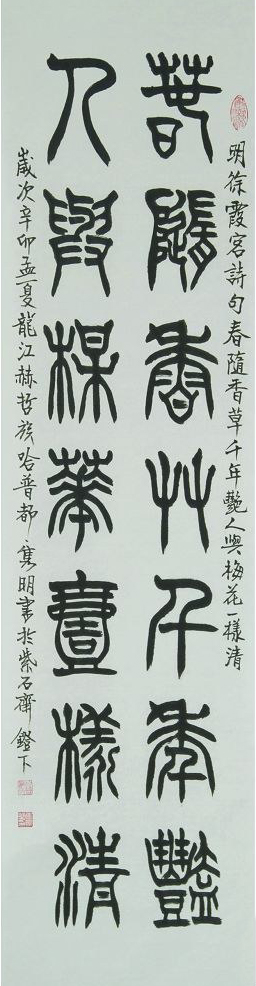 明徐霞客詩句春隨香草千年艷人與梅花一樣清
春隨香草千年豔
人與楳華壹樣清
歲次辛卯孟夏龍江赫哲族哈普都隽明書於紫石齋鐙下